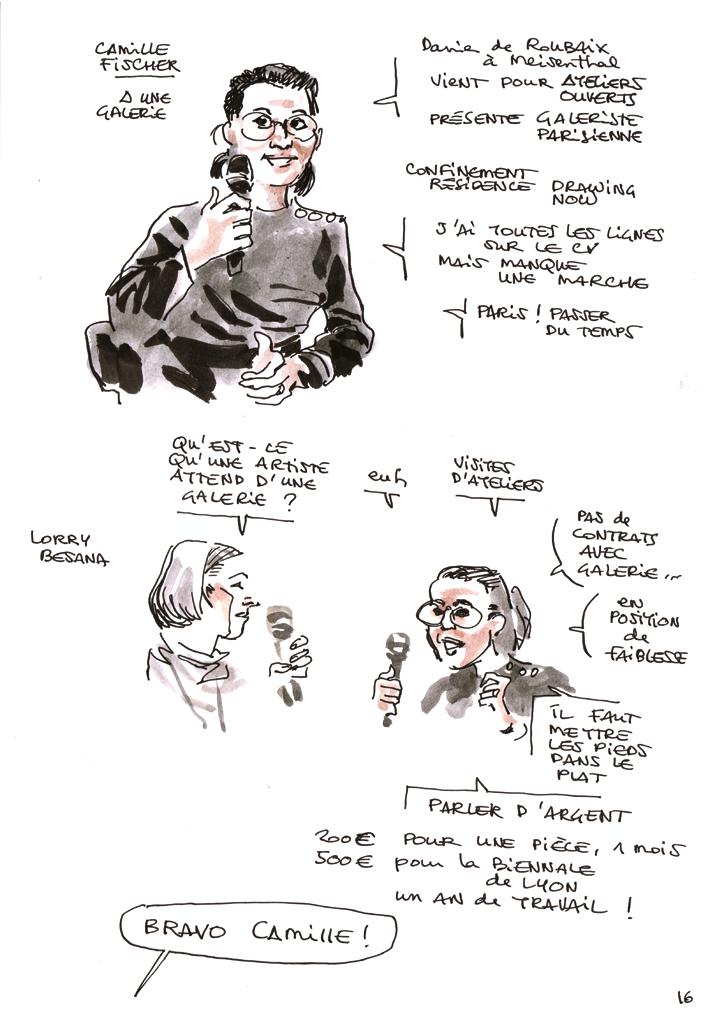 CAMILLE
FISCHER
A UNE
GALERIE
de ROUBAIX
à MEISENTHAL
VIENT POUR ATELIERS
OUVERTS
PRÉSENTE GALERISTE
PARISIENNE
CONFINEMENT
RÉSIDENCE DRAWING
NOW
J'AI TOUTES LES LIGNES
SUR LE CV
MAIS MANQUE
UNE MARCHE
PARIS ! PASSER
DU TEMPS
QU'EST-CE
QU'UNE ARTISTE
ATTEND D'UNE
GALERIE ?
euh
VISITES
D'ATELIERS
LORRY
BESANA
PAS de
CONTRATS
AVEC
GALERIE...
EN
POSITION
de
FAIBLESSE
IL FAUT
METTRE
LES PIEDS
DANS LE
PLAT
PARLER D'ARGENT
200€ POUR UNE PIÈCE, 1 MOIS
500€ pour la BIENNALE
de LYON
un AN de TRAVAIL !
BRAVO CAMILLE !
16